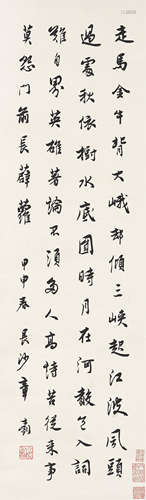 走馬金牛背大峨却傾三峽起江波風頭
過處秋依樹水底圓時月在河救急入詞
雖自累英雄著論不須多人高恃昔從來事
莫怨門前長薜蘿 甲申春長沙章